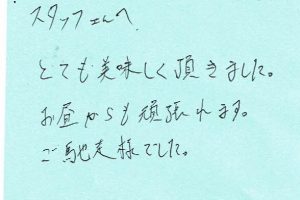 スタッフさんへ
とても美味しく頂きました。
お昼からも頑張れます。
ご馳走様でした。